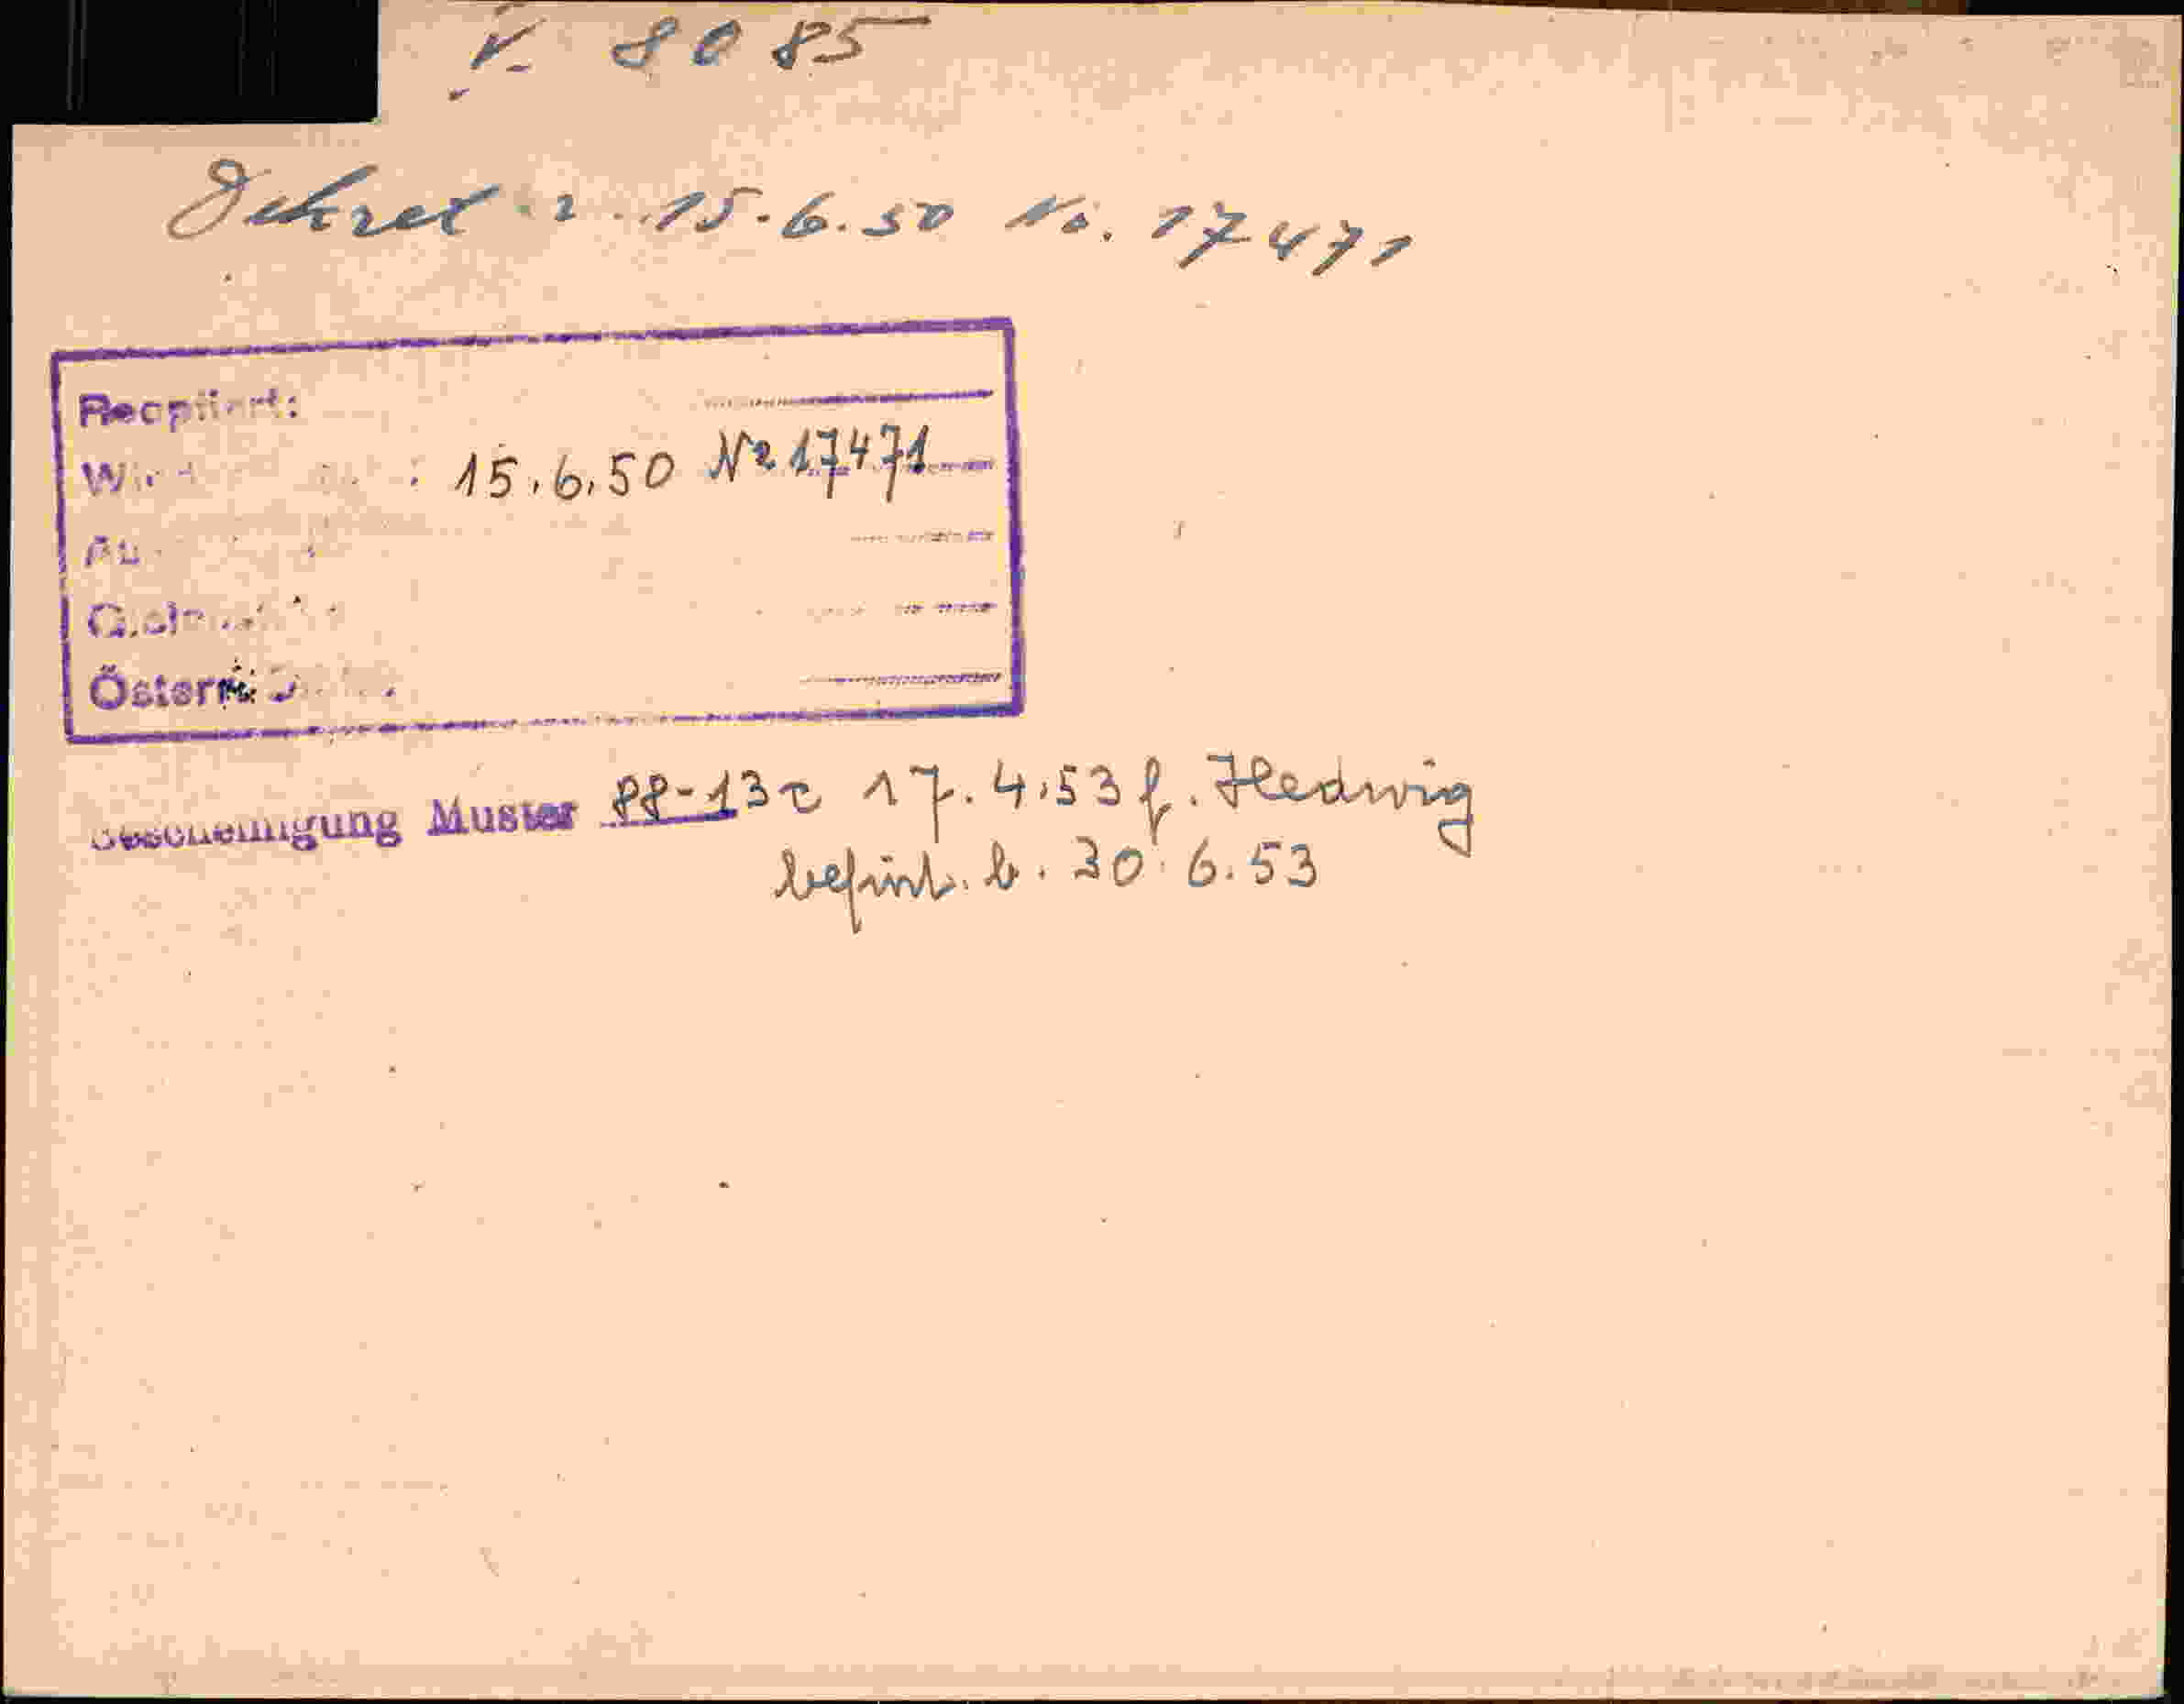 V. 8085
Dekret v. 15.6.50 No. 17471
Reoptiert:
: 15.6.50 No 17471
Bescheinigung Muster 88-13c 17.4.53 f. Hedwig
befint. b. 30.6.53